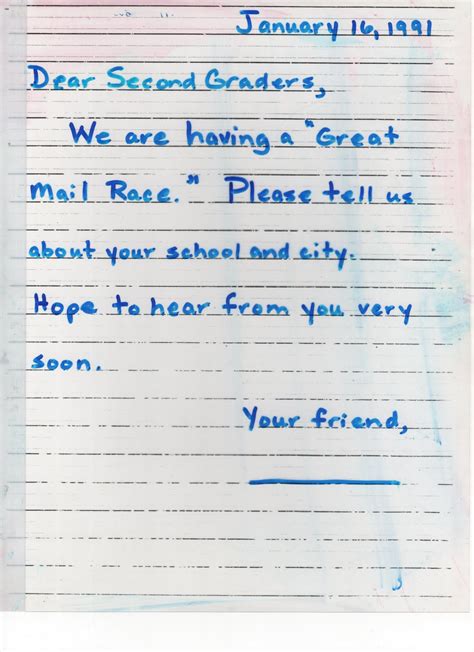 January 16, 1991
Dear Second Graders,
We are having a "Great
Mail Race." Please tell us
about your school and city.
Hope to hear from you very
soon.
Your friend,